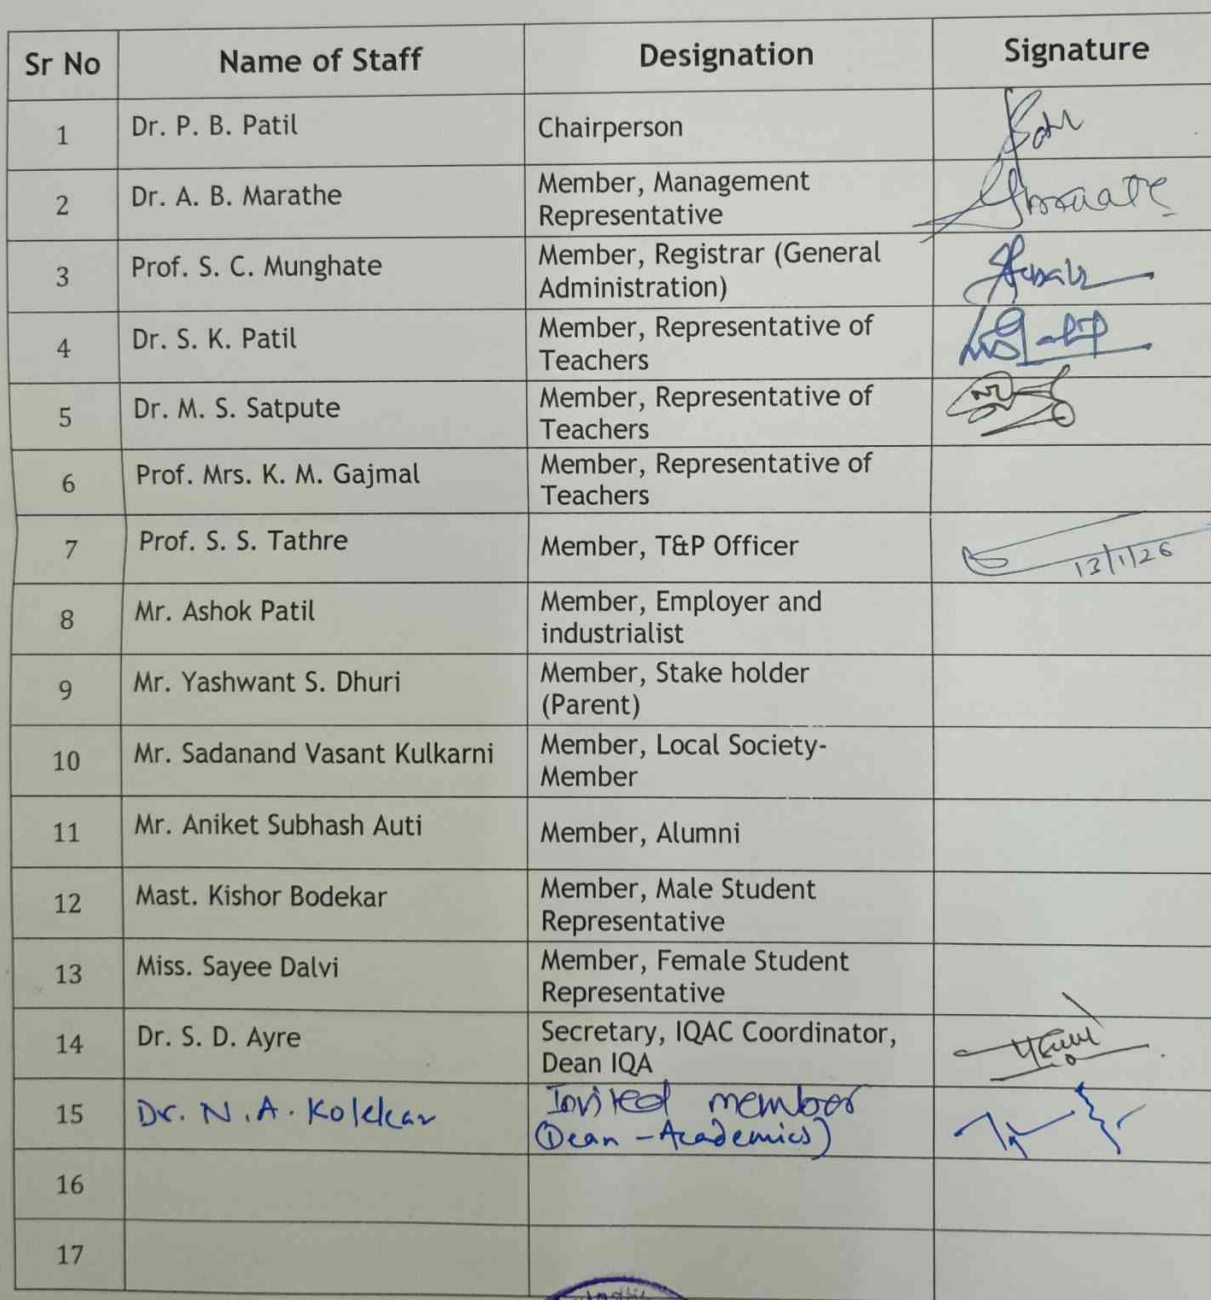 Sr No Name of Staff Designation Signature
1 Dr. P. B. Patil Chairperson
2 Dr. A. B. Marathe Member, Management
Representative
3 Prof. S. C. Munghate Member, Registrar (General
Administration)
4 Dr. S. K. Patil Member, Representative of
Teachers
5 Dr. M. S. Satpute Member, Representative of
Teachers
6 Prof. Mrs. K. M. Gajmal Member, Representative of
Teachers
7 Prof. S. S. Tathre Member, T&P Officer 13/1/26
8 Mr. Ashok Patil Member, Employer and
industrialist
9 Mr. Yashwant S. Dhuri Member, Stake holder
(Parent)
10 Mr. Sadanand Vasant Kulkarni Member, Local Society-
Member
11 Mr. Aniket Subhash Auti Member, Alumni
12 Mast. Kishor Bodekar Member, Male Student
Representative
13 Miss. Sayee Dalvi Member, Female Student
Representative
14 Dr. S. D. Ayre Secretary, IQAC Coordinator,
Dean IQA
15 Dr. N. A. Kolekar Invited member
(Dean - Academics)
16
17